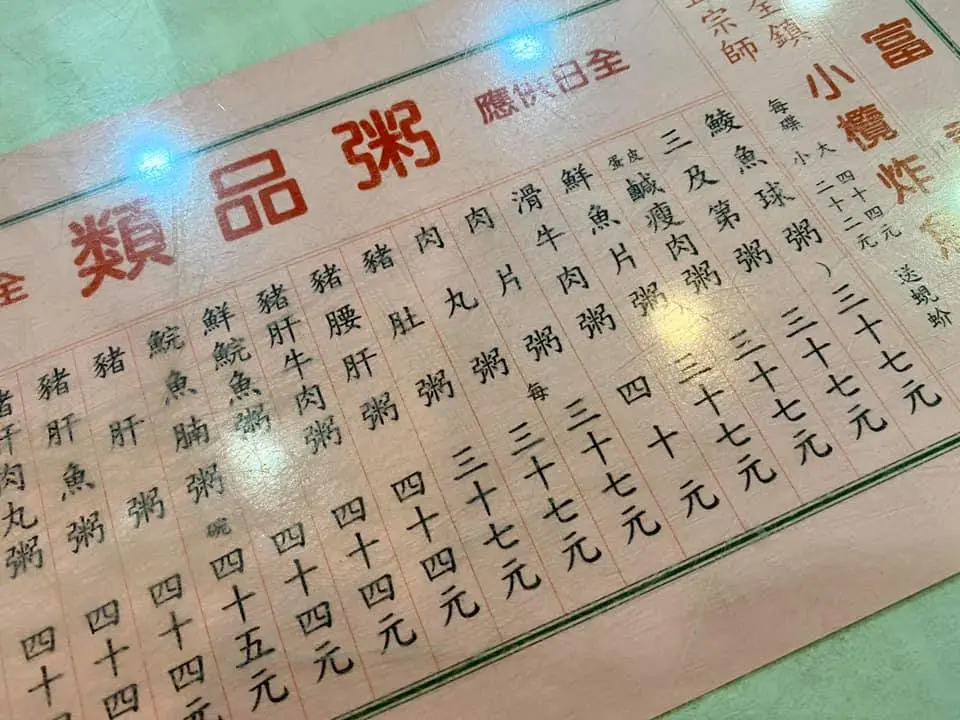 富
小欖炸
全鎮
宗師
每碟
大 四十四元
小 二十二元
送蜆蚧
全日供應
粥品類
鯪魚球粥) 三十七元
三及第粥 三十七元
皮蛋鹹瘦肉粥 三十七元
鮮魚片粥 四十元
滑牛肉粥 三十七元
肉片粥 三十七元
肉丸粥 三十七元
豬肚粥 四十四元
豬腰肝粥 四十四元
豬肝牛肉粥 四十四元
鮮鯇魚粥 四十五元
鯇魚腩粥 四十四元
豬肝粥 四十四
豬肝魚粥 四十
豬肝肉丸粥
每
碗
全